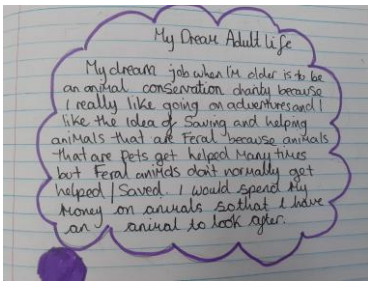 My Dream Adult Life
My dream job when I'm older is to be
an animal conservation charity because
I really like going on adventures and I
like the idea of Saving and helping
animals that are Feral because animals
that are Pets get helped Many times
but Feral animals don't normally get
helped / Saved. I would spend My
Money on animals so that I have
an animal to look after.